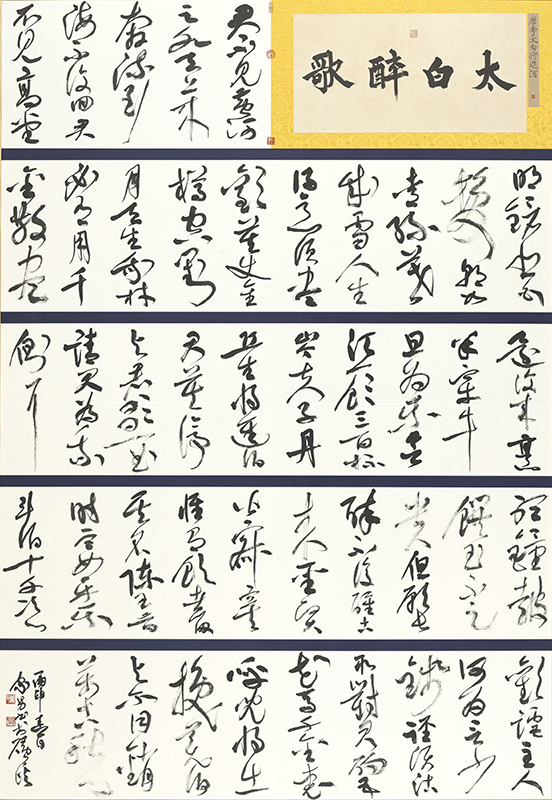 唐李太白將進酒
太白醉歌
君不見黃河
之水天上來
奔流到
海不復回君
不見高堂
明鏡悲白
髮朝如
青絲暮
成雪人生
得意須盡
歡莫使金
樽空對
月天生我材
必有用千
金散盡
還復來烹
羊宰牛
且為樂會
須一飲三百杯
岑夫子丹
丘生將進酒
君莫停
與君歌一曲
請君為我
側耳
聽鐘鼓
饌玉不足
貴但願長
醉不復醒古
來聖賢
皆寂寞
惟有飲者留
其名陳王昔
時宴平樂
斗酒十千恣
歡謔主人
何為言少
錢徑須沽
取對君酌五
花馬千金裘
呼兒將出
換美酒
與爾同銷
萬古愁
丙申春月